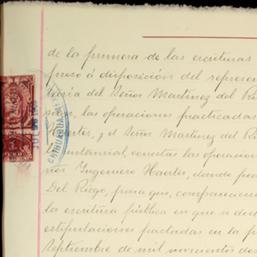 de la primera de las escrituras
puso á disposición del represen
toria del Señor Martinez del Rio
las operaciones practicadas
Haerter, y el Señor Martinez del R
constancial, correctas las operacion
ñor Ingeniero Haerter, dando po
Del Riego, para que, compareciend
la escritura pública en que se des
estipulaciones pactadas en la p
Septiembre de mil novecientos do
CHIHUAHUA